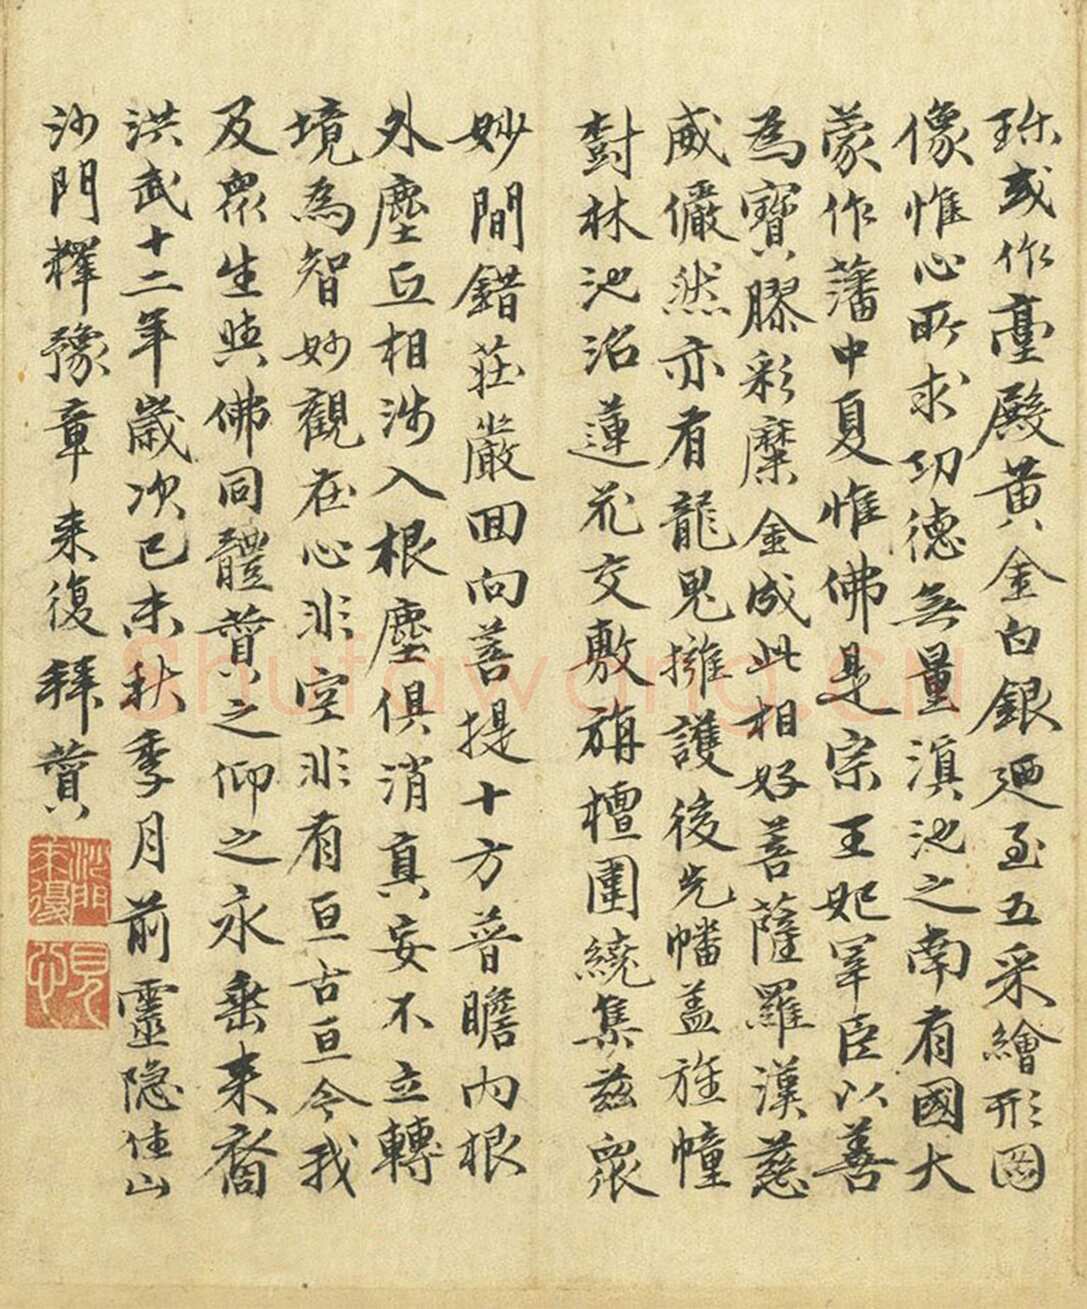 珎或作臺殿黄金白銀廼至五采繪形圖
像惟心所求功德無量滇池之南有國大
蒙作藩中夏惟佛是宗王妃宰臣以善
為寶膠彩糜金成此相好菩薩羅漢慈
威儼然亦有龍鬼擁護後先幡盖旌幢
樹林池沼蓮花交敷旃檀圍繞集茲眾
妙間錯莊嚴回向菩提十方普瞻內根
外塵互相涉入根塵俱消真妄不立轉
境為智妙觀在心非空非有亘古亘今我
及眾生與佛同體贊之仰之永垂来裔
洪武十二年歲次己未秋季月前靈隐住山
沙門釋豫章来復拜贊
沙門来復
見心
Shufawang.cn